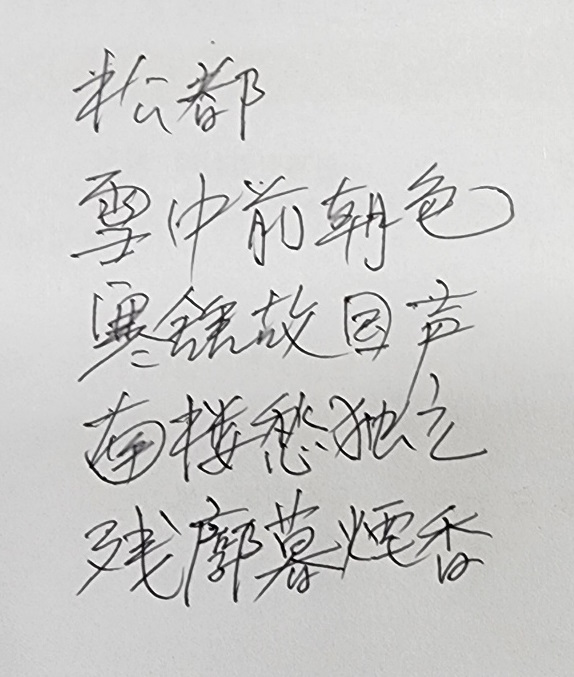 松都
雪中前朝色
寒鐘故国声
南楼愁独立
残廓暮煙香